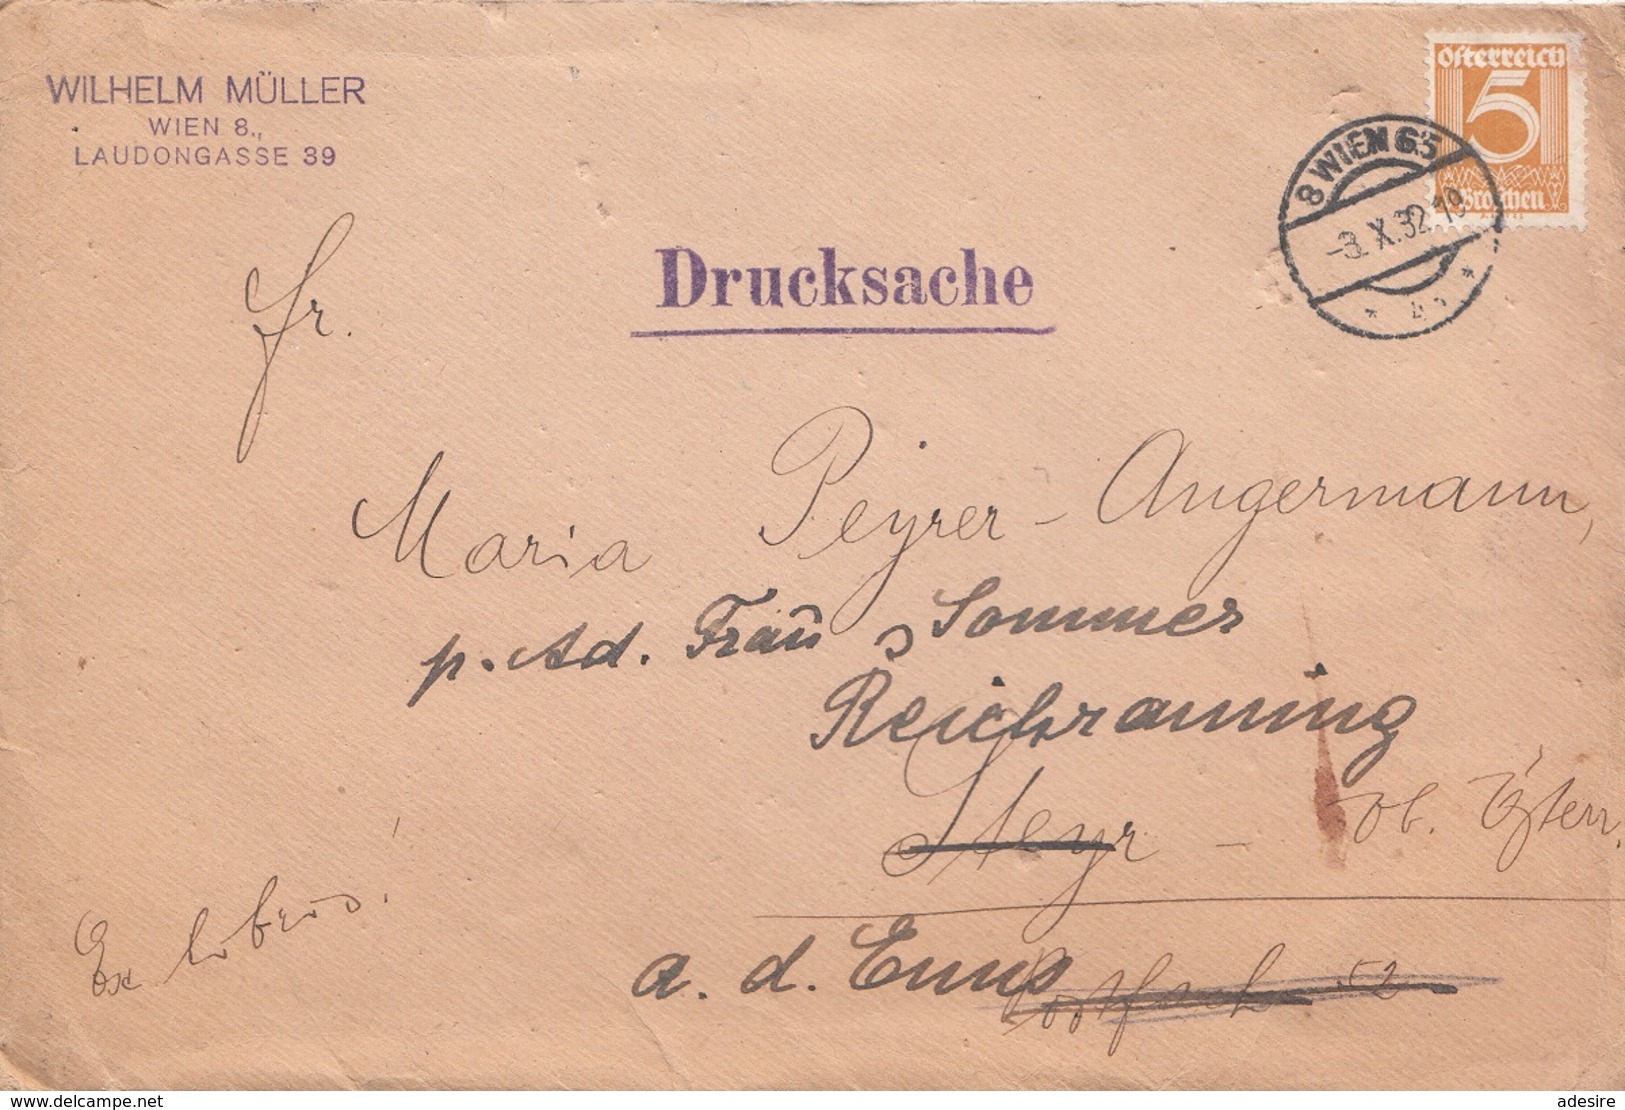 WILHELM MÜLLER
WIEN 8.,
LAUDONGASSE 39
Österreich
5
Groschen
8 WIEN 65
-3. X. 32 19
Drucksache
Fr.
Maria Peyrer-Angermann,
p. Ad. Frau Sommer
Reichraming
Steyr - Ob. Österr.
Ex libris!
a. d. Enns
Postfach 52
delcampe.net
adesire